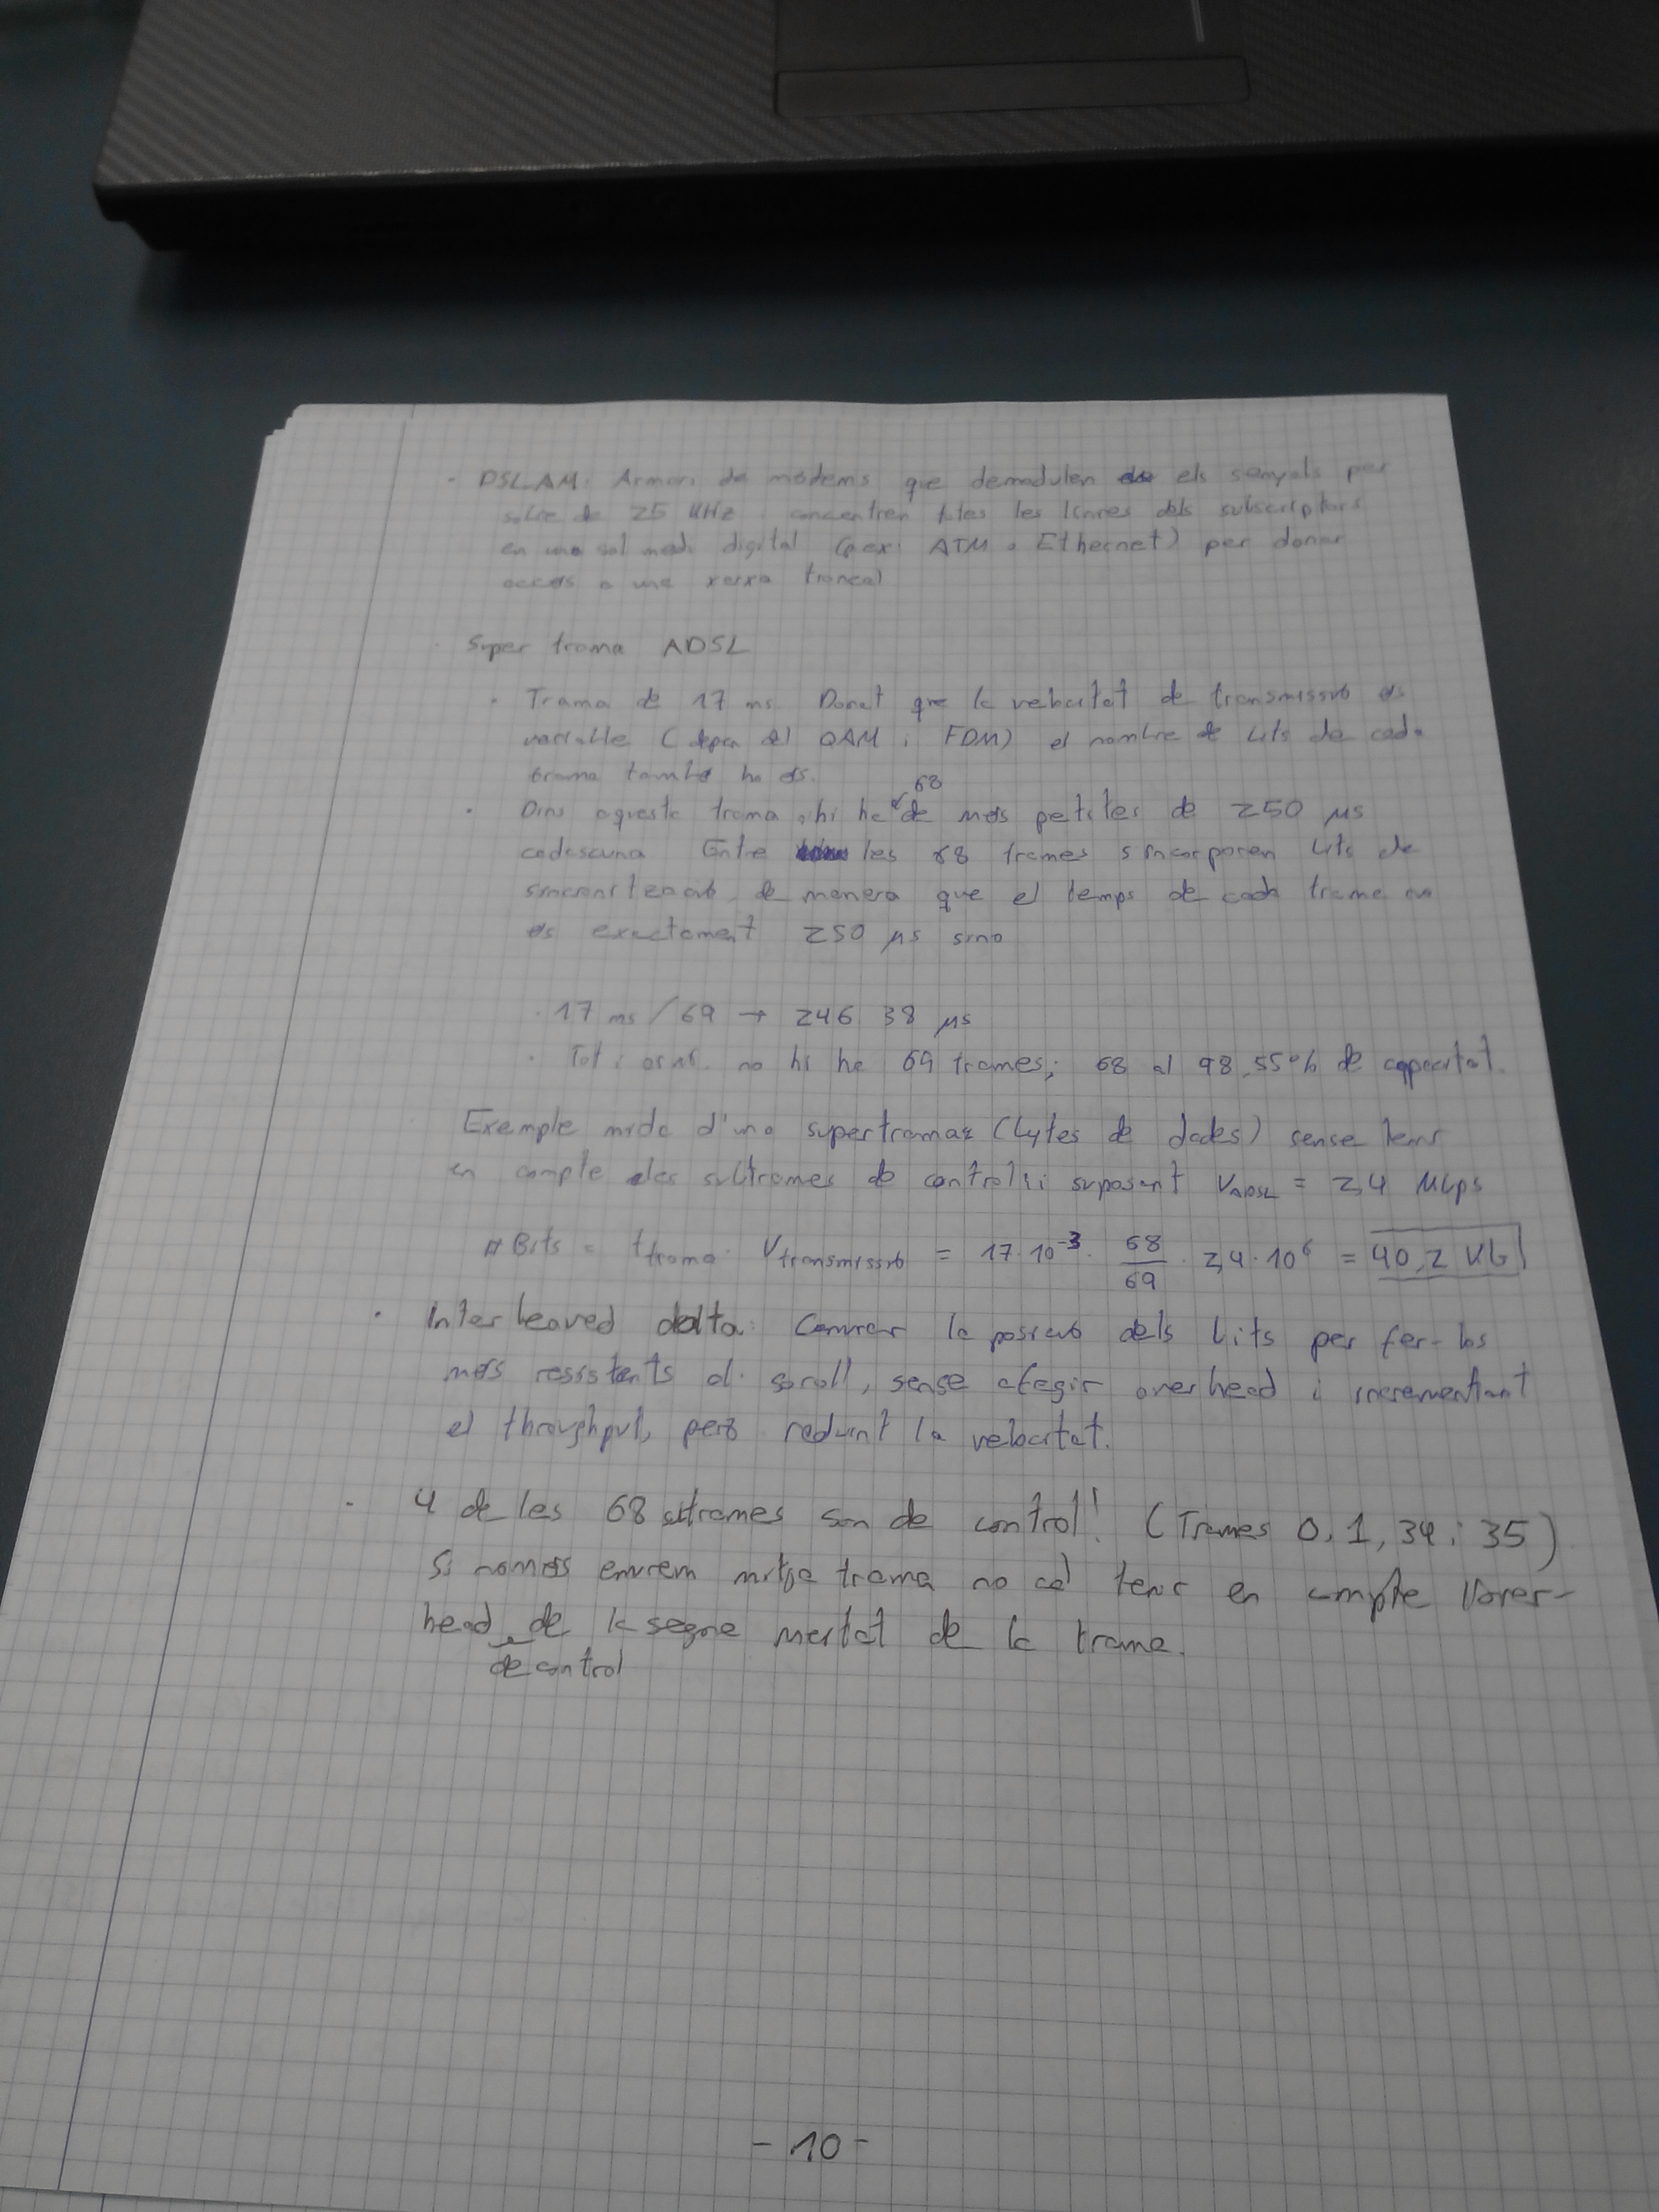 · DSLAM: Armari de mòdems que demodulen els senyals per
sobre de 25 KHz i concentren totes les línies dels subscriptors
en un sol medi digital (p.ex: ATM o Ethernet) per donar
accés a una xarxa troncal
· Super trama ADSL
· Trama de 17 ms. Donat que la velocitat de transmissió és
variable (depèn del QAM i FDM) el nombre de bits de cada
trama també ho és.
68
· Dins aquesta trama, hi ha de més petites de 250 μs
cadascuna. Entre les 68 trames s'incorporen bits de
sincronització, de manera que el temps de cada trama no
és exactament 250 μs sinó
· 17 ms / 69 → 246,38 μs
· Tot i així, no hi ha 69 trames; 68 al 98,55% de capacitat.
Exemple mida d'una supertrama (bytes de dades) sense tenir
en compte les subtrames de control i suposant V_ADSL = 2,4 Mbps
# Bits = t_trama · V_transmissió = 17·10⁻³ · 68/69 · 2,4·10⁶ = 40,2 Kb
· Interleaved data: Canviar la posició dels bits per fer-los
més resistents al soroll, sense afegir overhead i incrementant
el throughput, però reduint la velocitat.
· 4 de les 68 subtrames són de control! (Trames 0, 1, 34 i 35)
Si només enviem mitja trama no cal tenir en compte l'over-
head de la segona meitat de la trama.
de control
- 10 -